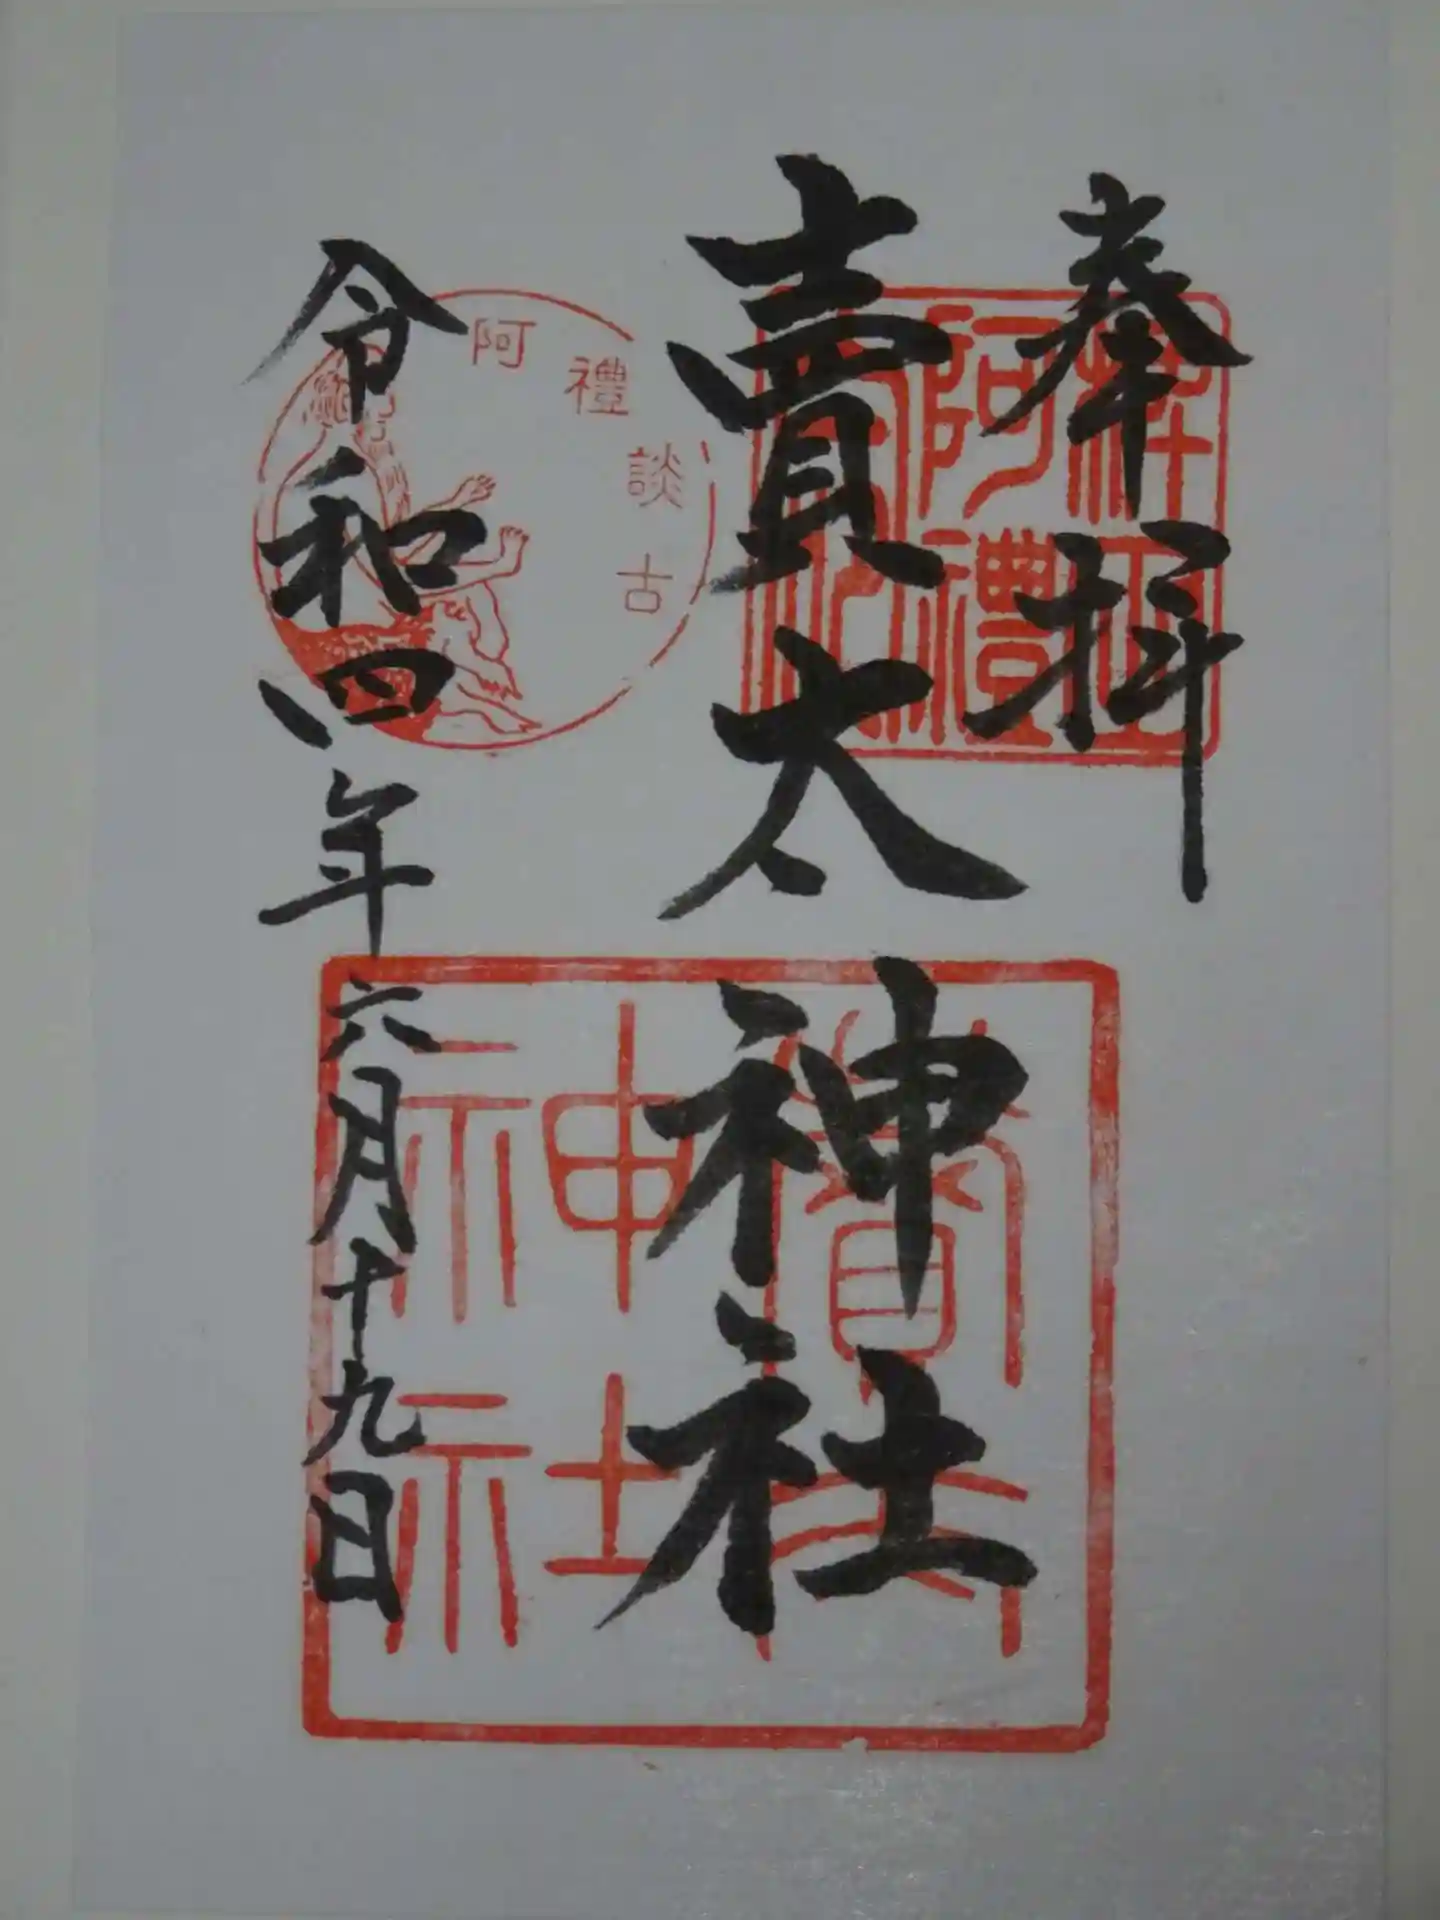 奉拝
賣太神社
令和四年六月十九日
阿禮談古
賣太
神社